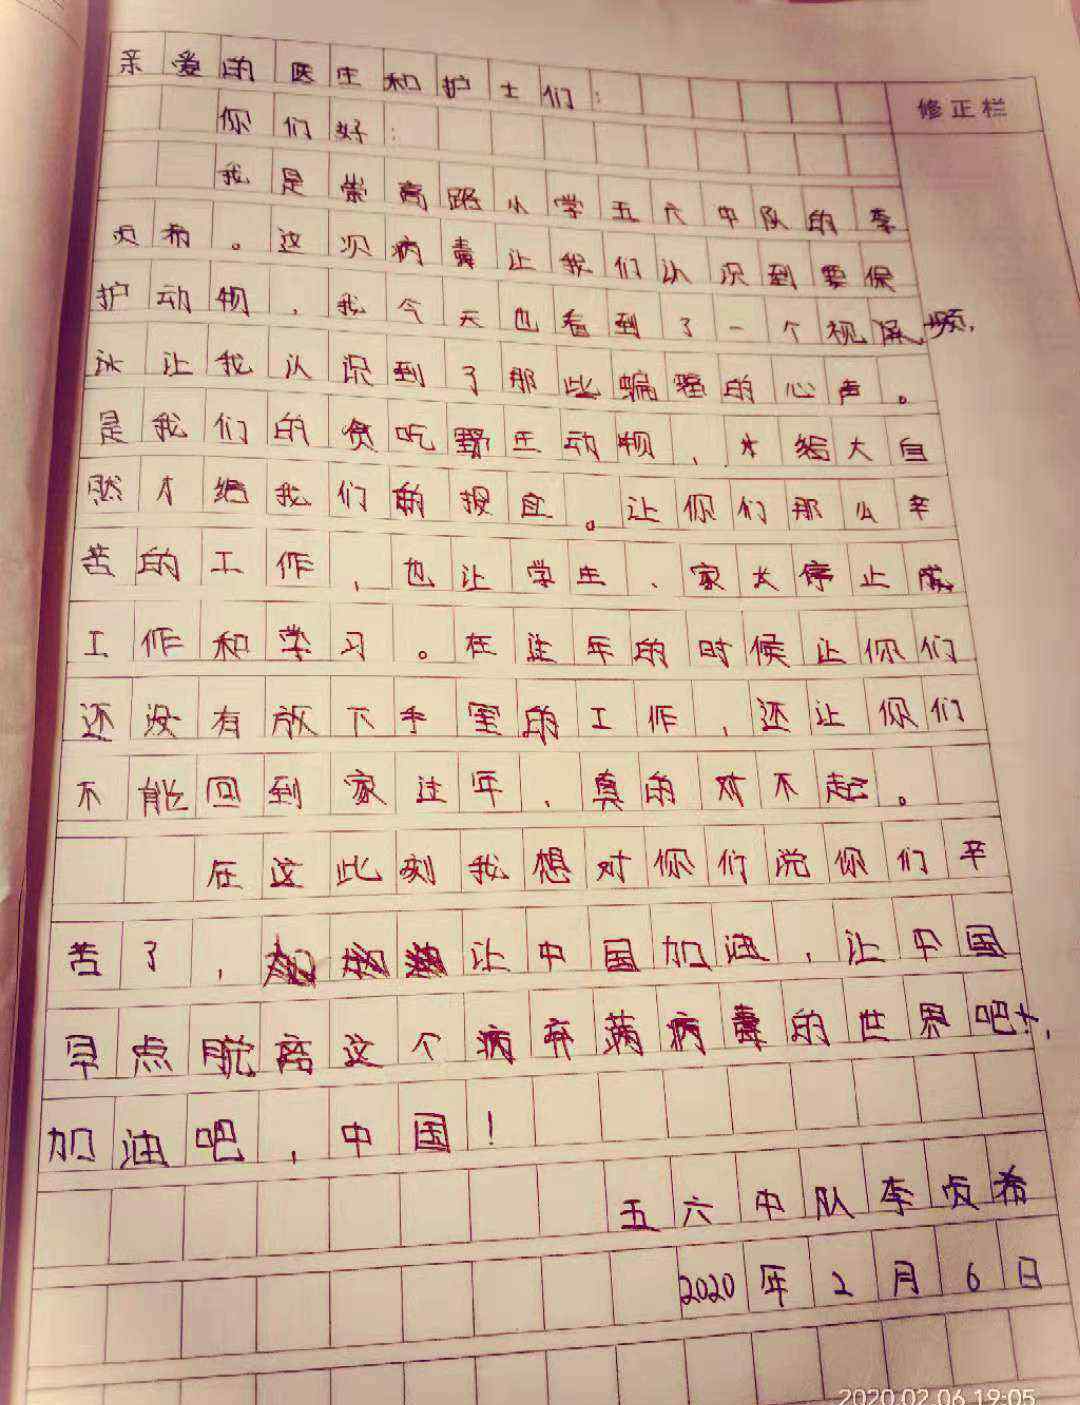 亲爱的医生和护士们：
修正栏
你们好：
我是崇高路小学五六中队的李
贞希。这次病毒让我们认识到要保
护动物，我今天也看到了一个视频，
让我认识到了那些蝙蝠的心声。
是我们的贪吃野生动物，大自
然才给我们的报宜。让你们那么辛
苦的工作，也让学生、家大停止
工作和学习。在过年的时候让你们
还没有放下手里的工作，还让你们
不能回到家过年，真的对不起。
在这此刻我想对你们说你们辛
苦了，让中国加油，让中国
早点脱离这个病弃满病毒的世界吧，
加油吧，中国！
五六中队李贞希
2020年2月6日
2020.02.06 19:05